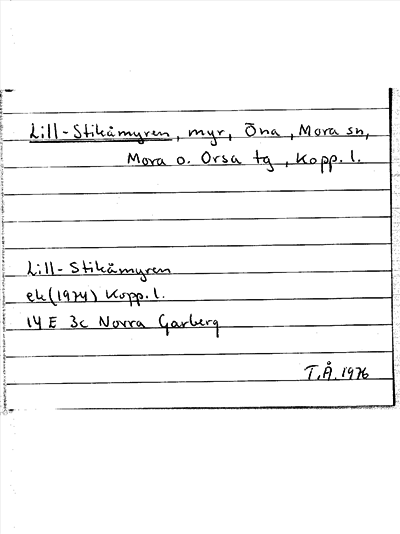 Lill-Stikåmyren, myr, Öna, Mora sn,
Mora o. Orsa tg, Kopp. l.
Lill-Stikåmyren
ek (1974) Kopp. l.
14 E 3c Norra Garberg
T.Å. 1976